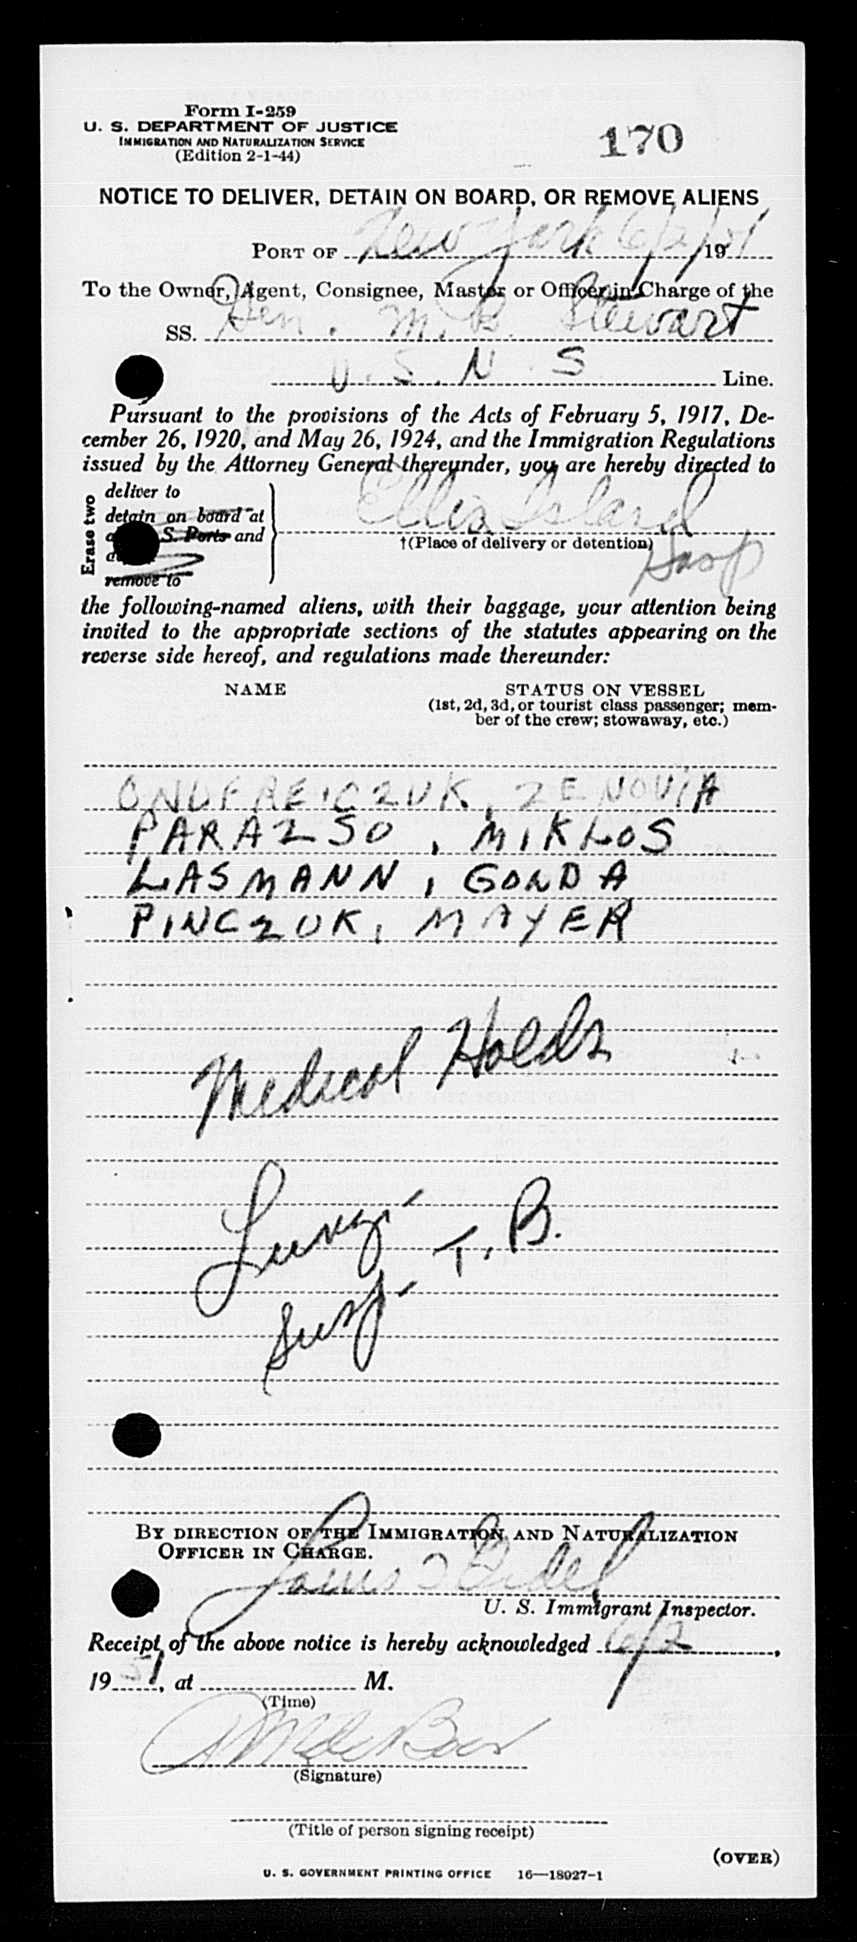 Form I-259
U. S. DEPARTMENT OF JUSTICE
IMMIGRATION AND NATURALIZATION SERVICE
(Edition 2-1-44)
170
NOTICE TO DELIVER, DETAIN ON BOARD, OR REMOVE ALIENS
PORT OF New York 6/2/1951
To the Owner, Agent, Consignee, Master or Officer in Charge of the
SS. Gen. M. B. Stewart
U. S. N. S Line.
Pursuant to the provisions of the Acts of February 5, 1917, De-
cember 26, 1920, and May 26, 1924, and the Immigration Regulations
issued by the Attorney General thereunder, you are hereby directed to
Erase two
deliver to
detain on board at
S. Ports and
remove to
Ellis Island
†(Place of delivery or detention)
Hosp
the following-named aliens, with their baggage, your attention being
invited to the appropriate sections of the statutes appearing on the
reverse side hereof, and regulations made thereunder:
NAME STATUS ON VESSEL
(1st, 2d, 3d, or tourist class passenger; mem-
ber of the crew; stowaway, etc.)
ONUFREICZUK, ZENOVIA
PARAZSO, MIKLOS
LASMANN, GONDA
PINCZUK, MAYER
Medical Holds
Lung -
Susp - T. B.
BY DIRECTION OF THE IMMIGRATION AND NATURALIZATION
OFFICER IN CHARGE.
Louis
U. S. Immigrant Inspector.
Receipt of the above notice is hereby acknowledged 6/2,
1951, at M.
(Time)
(Signature)
(Title of person signing receipt)
(OVER)
U. S. GOVERNMENT PRINTING OFFICE 16—18027-1